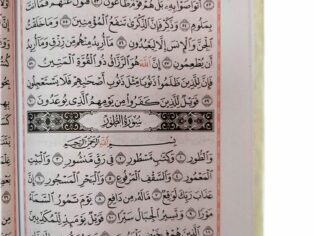 أَتَوَاصَوْا۟ بِهِۦ بَلْ هُمْ قَوْمٌ طَاغُونَ ٥٣ فَتَوَلَّ عَنْهُمْ فَمَآ أَنتَ
بِمَلُومٍ ٥٤ وَذَكِّرْ فَإِنَّ ٱلذِّكْرَىٰ تَنفَعُ ٱلْمُؤْمِنِينَ ٥٥ وَمَا خَلَقْتُ
ٱلْجِنَّ وَٱلْإِنسَ إِلَّا لِيَعْبُدُونِ ٥٦ مَآ أُرِيدُ مِنْهُم مِّن رِّزْقٍ وَمَآ أُرِيدُ
أَن يُطْعِمُونِ ٥٧ إِنَّ ٱللَّهَ هُوَ ٱلرَّزَّاقُ ذُو ٱلْقُوَّةِ ٱلْمَتِينُ ٥٨
فَإِنَّ لِلَّذِينَ ظَلَمُوا۟ ذَنُوبًا مِّثْلَ ذَنُوبِ أَصْحَٰبِهِمْ فَلَا يَسْتَعْجِلُونِ
٥٩ فَوَيْلٌ لِّلَّذِينَ كَفَرُوا۟ مِن يَوْمِهِمُ ٱلَّذِى يُوعَدُونَ ٦٠
سُورَةُ الطُّورِ
بِسْمِ ٱللَّهِ ٱلرَّحْمَٰنِ ٱلرَّحِيمِ
وَٱلطُّورِ ١ وَكِتَٰبٍ مَّسْطُورٍ ٢ فِى رَقٍّ مَّنشُورٍ ٣ وَٱلْبَيْتِ
ٱلْمَعْمُورِ ٤ وَٱلسَّقْفِ ٱلْمَرْفُوعِ ٥ وَٱلْبَحْرِ ٱلْمَسْجُورِ ٦ إِنَّ
عَذَابَ رَبِّكَ لَوَٰقِعٌ ٧ مَّا لَهُۥ مِن دَافِعٍ ٨ يَوْمَ تَمُورُ ٱلسَّمَآءُ
مَوْرًا ٩ وَتَسِيرُ ٱلْجِبَالُ سَيْرًا ١٠ فَوَيْلٌ يَوْمَئِذٍ لِّلْمُكَذِّبِينَ